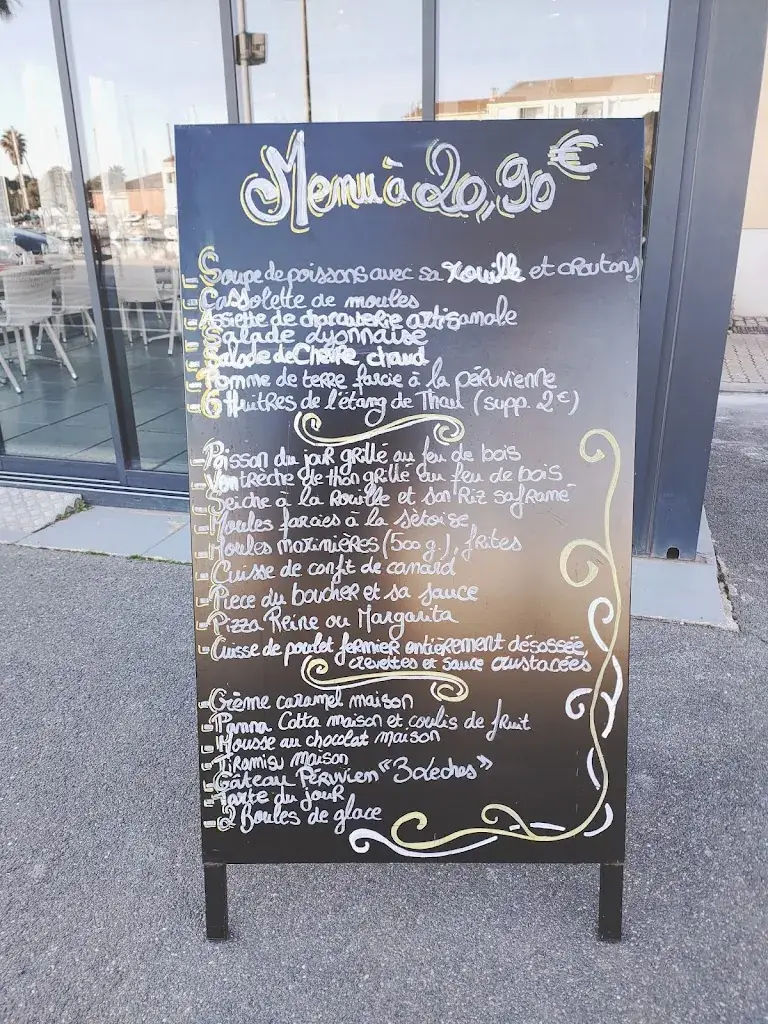 Menu à 20,90 €
Soupe de poissons avec sa rouille et croutons
Cassolette de moules
Assiette de charcuterie artisanale
Salade Lyonnaise
Salade de Chèvre chaud
Pomme de terre farcie à la péruvienne
6 Huitres de l'étang de Thau (supp. 2€)
Poisson du jour grillé au feu de bois
Ventrèche de thon grillé au feu de bois
Seiche à la Rouille et son Riz saframé
Moules farcies à la sètoise
Moules marinières (500g.), frites
Cuisse de confit de canard
Pièce du boucher et sa sauce
Pizza Reine ou Margarita
Cuisse de poulet fermier entièrement désossée,
crevettes et sauce crustacées
Crème caramel maison
Panna Cotta maison et coulis de fruit
Mousse au chocolat maison
Tiramisu maison
Gâteau Péruvien "3 Leches"
Tarte du jour
2 Boules de glace